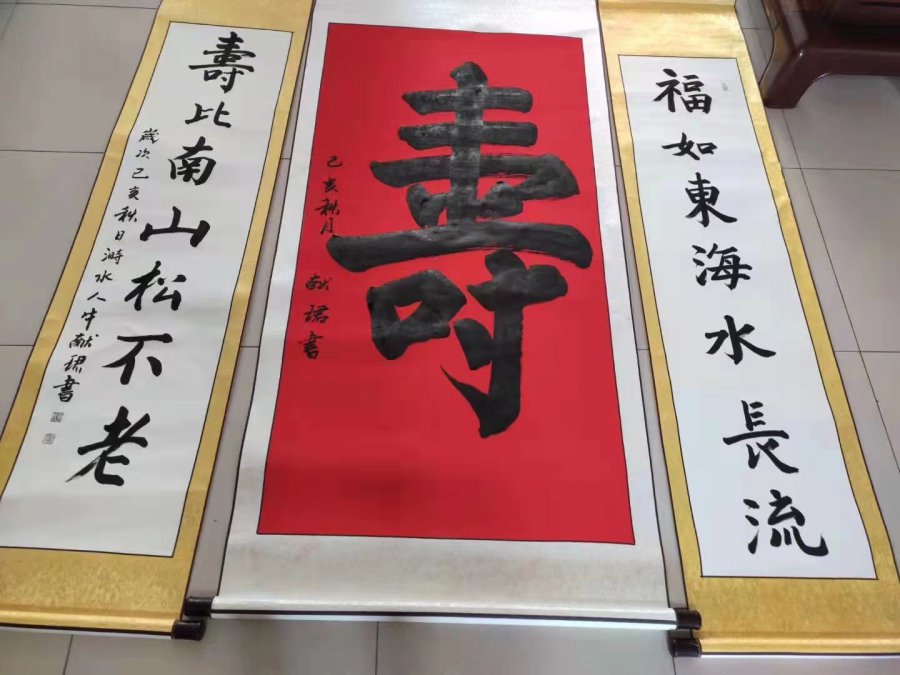 福如東海水長流
壽
己亥秋月
献珺書
壽比南山松不老
歲次己亥秋日溮水人牛献珺書